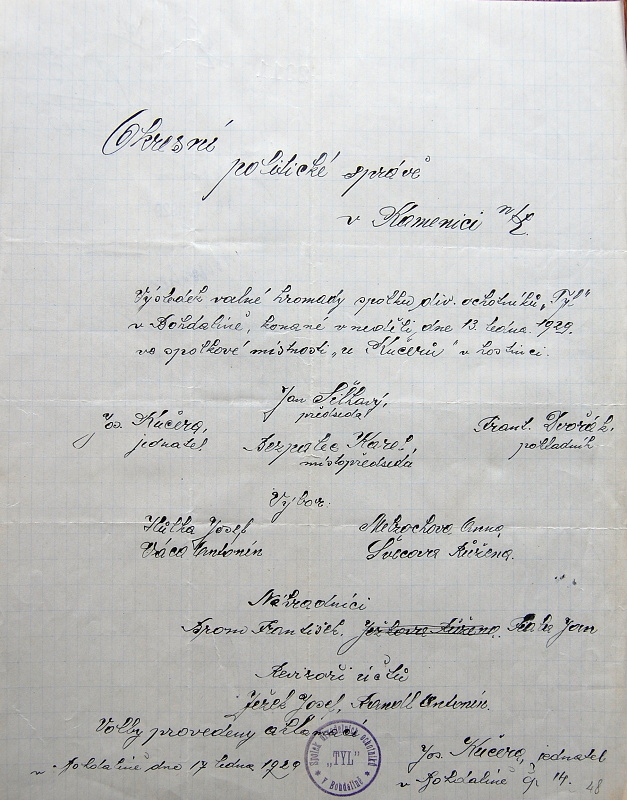 Okresní
politické správě
v Kamenici n/L.
Výsledek valné hromady spolku div. ochotníků „Tyl“
v Bohdalíně, konané v neděli, dne 13. ledna 1929.
ve spolkové místnosti „u Kučerů“ v hostinci.
Jan
předseda
Jos. Kučera,
jednatel.
Frant. Dvořák,
pokladník
Bezpalec Karel,
místopředseda
Výbor:
Hůlka Josef
Anna,
Váca Antonín
Švecova Růžena.
Náhradníci
Brom František, Ježkova Růžena, Jan
Revizoři účtů
Ježek Josef, Arnošt Antonín.
Volby provedeny aklamací
v Bohdalíně dne 17 ledna 1929
Spolek divadelních ochotníků
„TYL“
v Bohdalíně
Jos. Kučera, jednatel
v Bohdalíně čp 14.
48